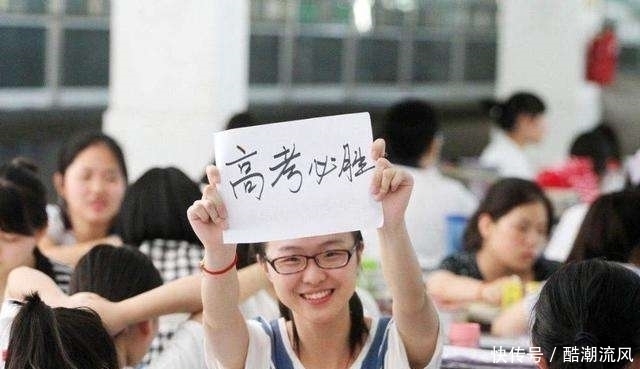 高考必胜
快传号/酷潮流风